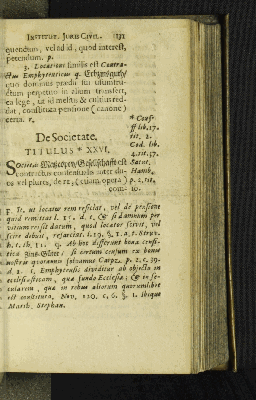 INSTITUT. JURIS CIVIL. 131
quendum, vel ad id, quod interest,
petendum. p.
3. Locationi similis est Contra-
ctus Emphyteuticus q.
quo dominus prædii sui usumfru-
ctum perpetuum in alium transfert,
ea lege, ut id melius & cultius red-
dat, constituta pensione (canone)
certa. r.
De Societate,
TITULUS * XXVI.
Societas est
contractus consensualis inter du-
os vel plures, de re, (etiam opera)
com-
* Conf.
ff lib. 17.
tit. 2.
Cod. lib.
4. tit. 37.
Statut.
Hamb.
p. 2, tit.
10.
p. It. ut locator rem reficiat, vel de pensione
quid remittat l. 15. d. t. & si dominum per
vitium rei sit datum, quod locator scivit, vel
scire debuit, resarciat. l. 19. §. 1. a. t. Struv.
h. t. th. 11. q. Ab hoc differunt bona censi-
tica si certum censum ex bonis
nostris quotannis solvamus Carpz. p. 2. c. 39.
d. 1. r. Emphyteusis dividitur ab objecto in
ecclesiasticam, quæ fundo Ecclesiæ; & in se-
cularem, quæ in rebus aliorum quorumlibet
est constituta, Nov. 120. c. 6. §. 1. ibique
Matth. Stephan.